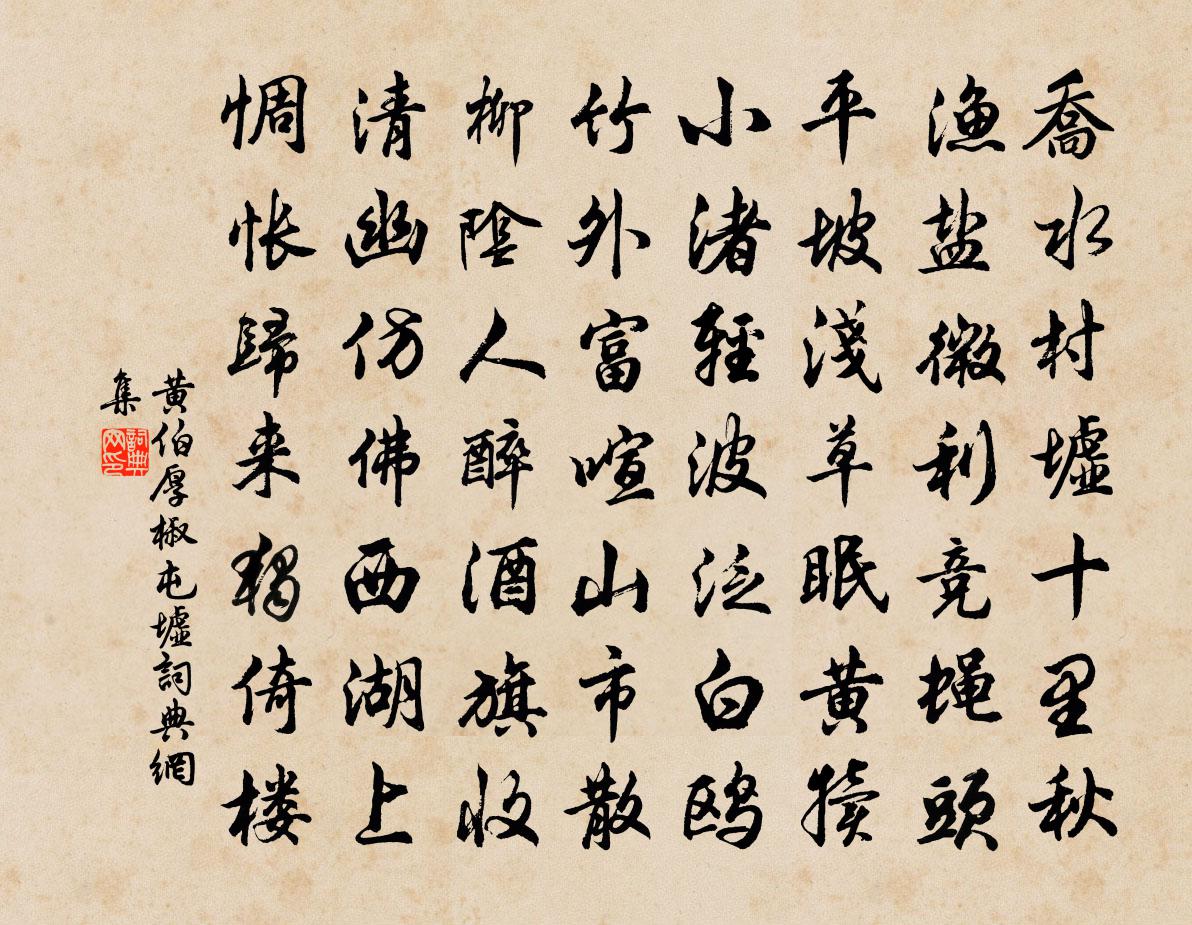 喬水村墟十里秋
漁盐微利竞蝇頭
平坡淺草眠黄犢
小渚輕波泛白鸥
竹外富喧山市散
柳陰人醉酒旗收
清幽仿佛西湖上
惆怅歸来独倚楼
黄伯厚椒屯墟詞典網
集
詞典网印